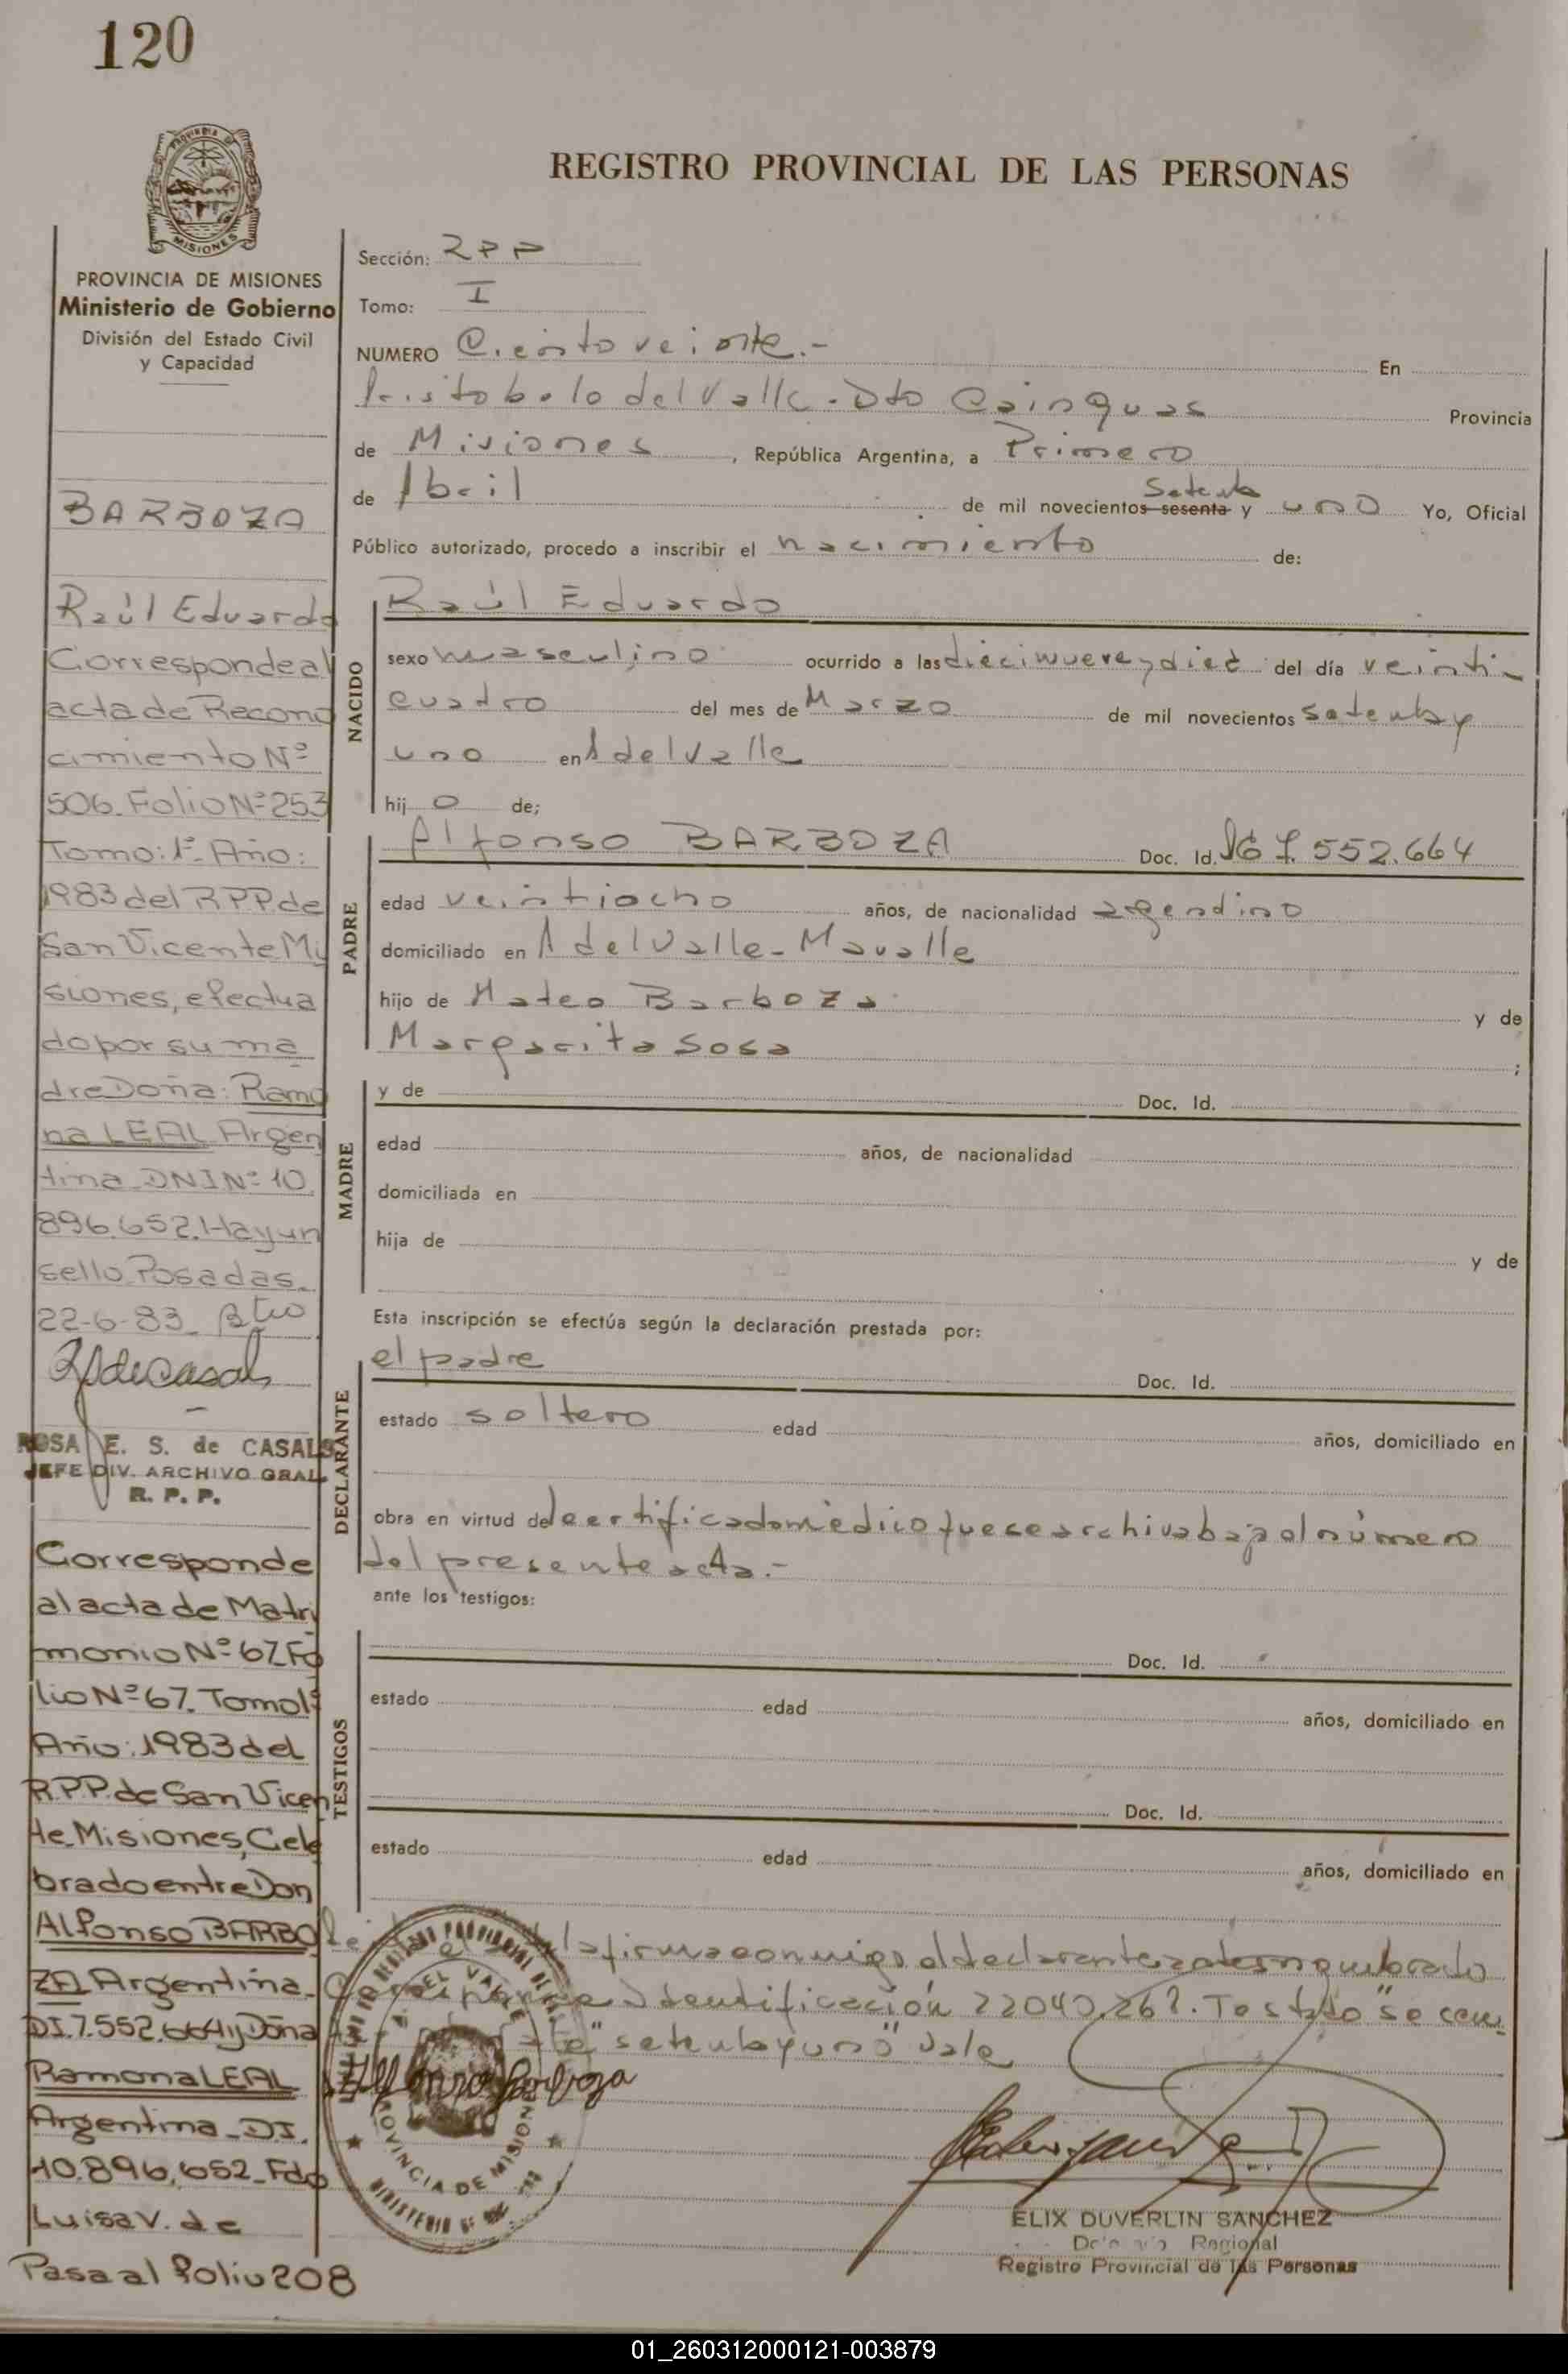 120
PROVINCIA DE
MISIONES
REGISTRO PROVINCIAL DE LAS PERSONAS
PROVINCIA DE MISIONES
Ministerio de Gobierno
División del Estado Civil
y Capacidad
BARBOZA
Raúl Eduardo
Corresponde al
acta de Recono
cimiento Nº
506. Folio Nº 253
Tomo: 1º- Año:
1983 del R.P.P. de
San Vicente Mi
siones, efectua
do por su ma
dre Doña: Ramo
na LEAL Argen
tina DNI Nº 10.
896.652. Hay un
sello Posadas.
22-6-83
ROSA E. S. de CASALS
JEFE DIV. ARCHIVO GRAL.
R. P. P.
Corresponde
al acta de Matri
monio Nº 67 Fo
lio Nº 67. Tomo 1º
Año: 1983 del
R.P.P. de San Vicen
te Misiones, Cele
brado entre Don
Alfonso BARBO
ZA Argentina.
DI. 7.552.664 y Doña
Ramona LEAL
Argentina - DI.
10.896.652 - Fdo
Luisa V. de
Pasa al folio 208
Sección: RPP
Tomo: I
NUMERO Ciento veinte.- En
Aristobulo del Valle - Dto Cainguas Provincia
de Misiones, República Argentina, a Primero
de Abril de mil novecientos sesenta Setenta y uno Yo, Oficial
Público autorizado, procedo a inscribir el nacimiento de:
NACIDO
Raúl Eduardo
sexo masculino ocurrido a las diecinueve y diez del día veinti
cuatro del mes de Marzo de mil novecientos setenta y
uno en A del Valle
hijo de;
PADRE
Alfonso BARBOZA Doc. Id. 7.552.664
edad veintiocho años, de nacionalidad argentino
domiciliado en A del Valle -
hijo de Mateo Barboza y de
Margarita Sosa ;
MADRE
y de Doc. Id.
edad años, de nacionalidad
domiciliada en
hija de y de
Esta inscripción se efectúa según la declaración prestada por:
DECLARANTE
el padre Doc. Id.
estado soltero edad años, domiciliado en
obra en virtud del certificado médico que se archiva bajo el número
del presente acta.-
ante los testigos:
TESTIGOS
Doc. Id.
estado edad años, domiciliado en
Doc. Id.
estado edad años, domiciliado en
la firma conmigo el declarante
Identificación Testado "se
"setenta y uno" Vale
Alfonso Barboza
DEL VALLE
PROVINCIA DE MISIONES
ELIX DUVERLIN SANCHEZ
Regional
Registro Provincial de las Personas
01_260312000121-003879